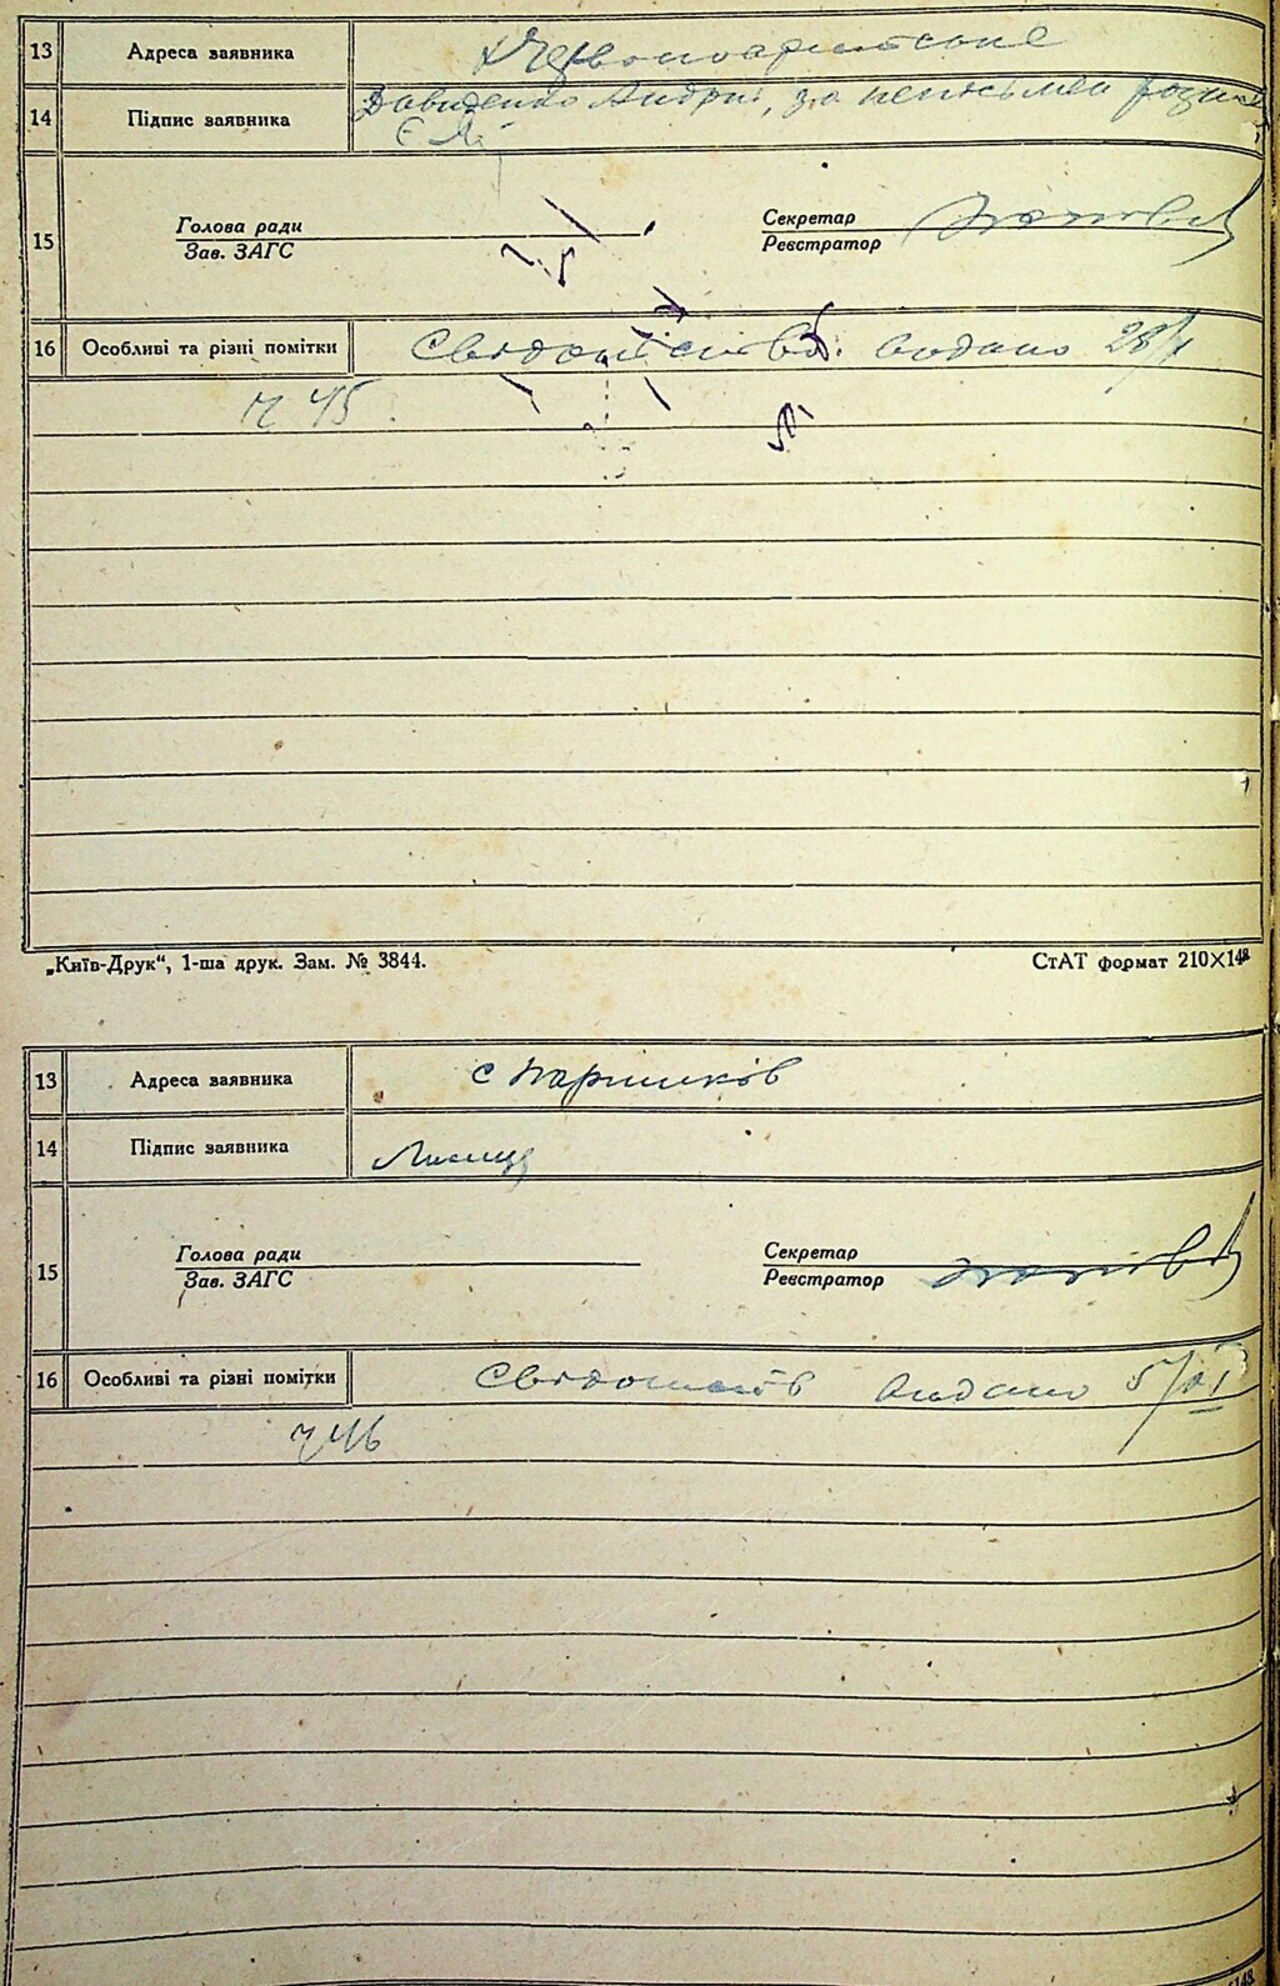 13 Адреса заявника х Червоноармійське
14 Підпис заявника Давиденко Андрій, за неписьмен
15 Голова ради Секретар
Зав. ЗАГС Реєстратор
16 Особливі та різні помітки Свідоцтво видано 28/X
ч 45
„Київ-Друк“, 1-ша друк. Зам. № 3844. СтАТ формат 210×148
13 Адреса заявника с Паришків
14 Підпис заявника
15 Голова ради Секретар
Зав. ЗАГС Реєстратор
16 Особливі та різні помітки видано 5/XI
ч 46